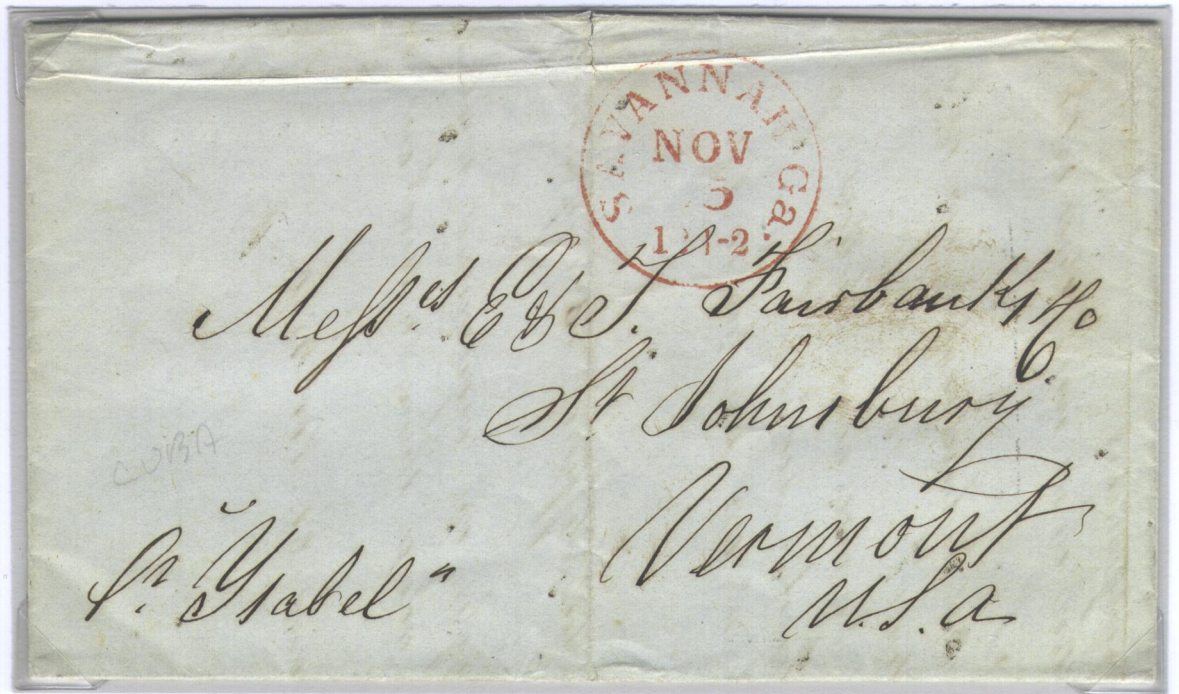 SAVANNAH Ga.
NOV
5
Messrs E & T. Fairbanks & Co
St Johnsbury
Vermont
U.S.A
CUBA
Pr "Ysabel"